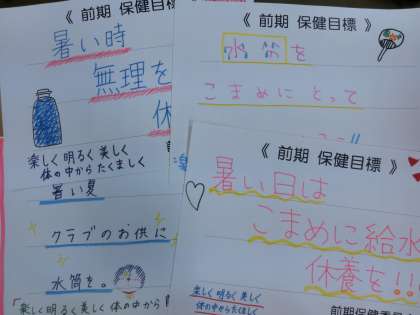 《 前期 保健目標 》
暑い時
無理を
休
楽しく 明るく 美しく
体の中から たくましく
暑い夏
クラブのお供に
水筒を。
「楽しく 明るく 美しく 体の中から
《 前期 保健目標 》
水筒を
こまめにとって
《 前期 保健目標 》
暑い日は
こまめに給水
休養を!!!
楽しく 明るく 美しく
体の中から たくましく
前期保健委員